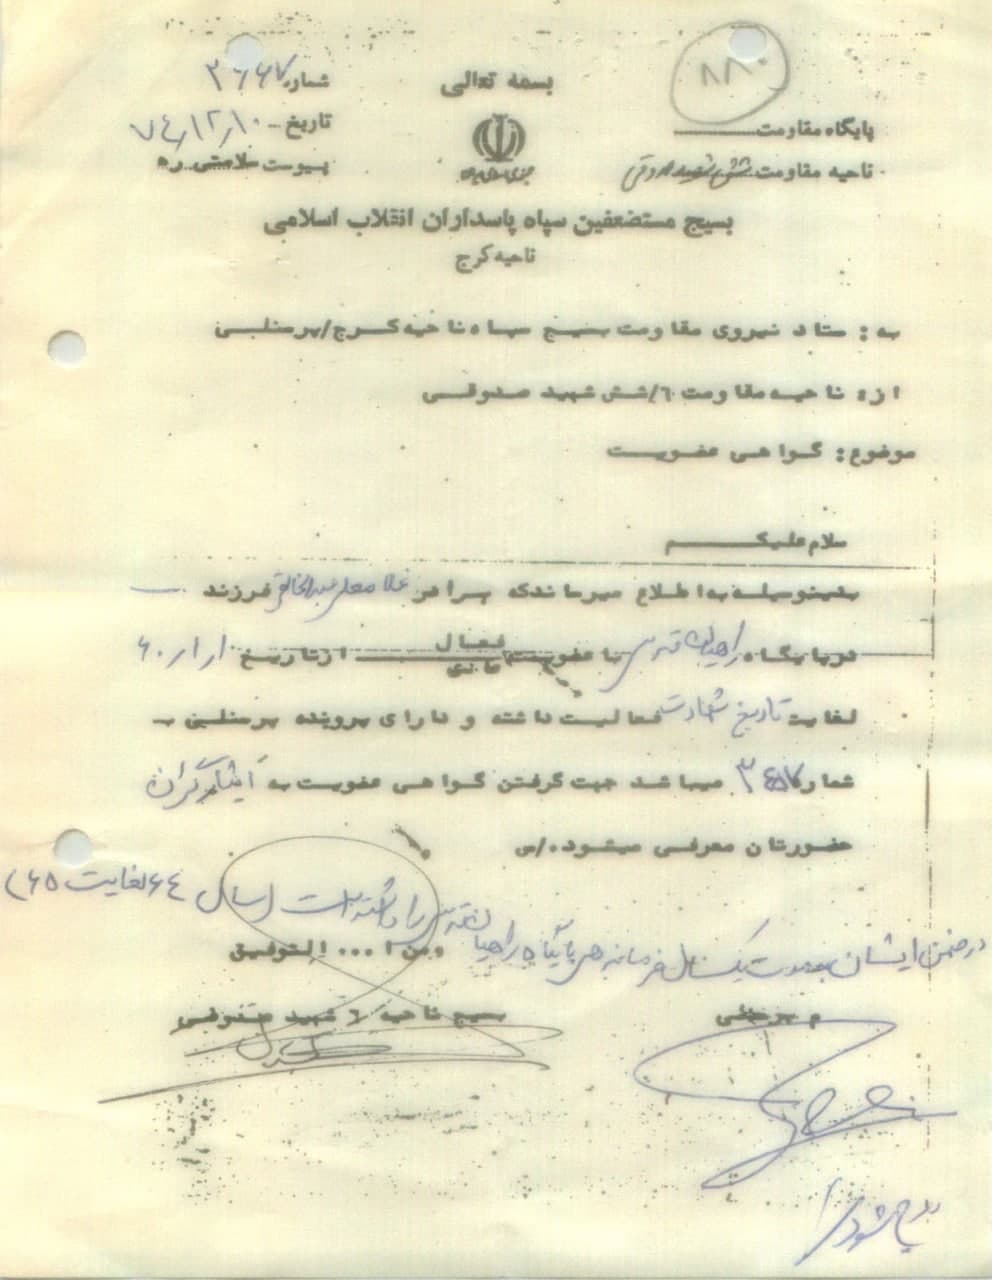 ۸۸۰
بسمه تعالی
شماره ۳۶۶۷
تاریخ ۷۴/۱۲/۱۰
پیوست سلامتی ره
پایگاه مقاومت
ناحیه مقاومت شش شهید صدوقی
جمهوری اسلامی ایران
بسیج مستضعفین سپاه پاسداران انقلاب اسلامی
ناحیه کرج
به: ستاد نیروی مقاومت بسیج سپاه ناحیه کرج/پرسنلی
از: ناحیه مقاومت ٦/شش شهید صدوقی
موضوع: گواهی عضویت
سلام علیکم
بدینوسیله به اطلاع میرساند که برادر غلامعلی عبدالخالقی فرزند
در پایگاه راهیان قدس با عضویت فعال عادی از تاریخ ۶۰/۱/۱
لغایت تاریخ شهادت فعالیت داشته و دارای پرونده پرسنلی به
شماره میباشد جهت گرفتن گواهی عضویت به ایثارگران
حضورتان معرفی میشود./س
در ضمن ایشان بمدت یکسال فرماندهی پایگاه راهیان قدس را داشته است (سال ۶۴ لغایت ۶۵)
ومن ا... التوفیق
م پرسنلی
بسیج ناحیه ٦ شهید صدوقی